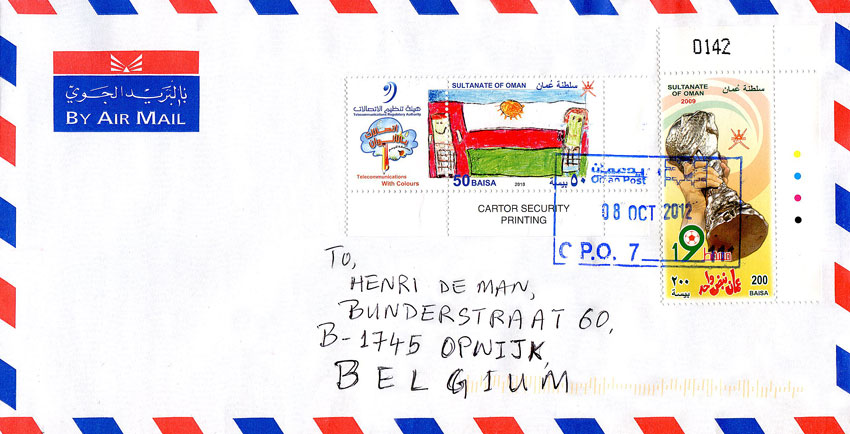 بالبريد الجوي
BY AIR MAIL
هيئة تنظيم الاتصالات
Telecommunications Regulatory Authority
Telecommunications
With Colours
SULTANATE OF OMAN سلطنة عمان
50 BAISA 2010 بيسة ٥٠
CARTOR SECURITY
PRINTING
0142
SULTANATE OF OMAN سلطنة عمان
2009
19
عمان نبض واحد
٢٠٠ بيسة
200 BAISA
Oman Post
08 OCT 2012
C P.O. 7
TO,
HENRI DE MAN,
BUNDERSTRAAT 60,
B-1745 OPWIJK,
BELGIUM